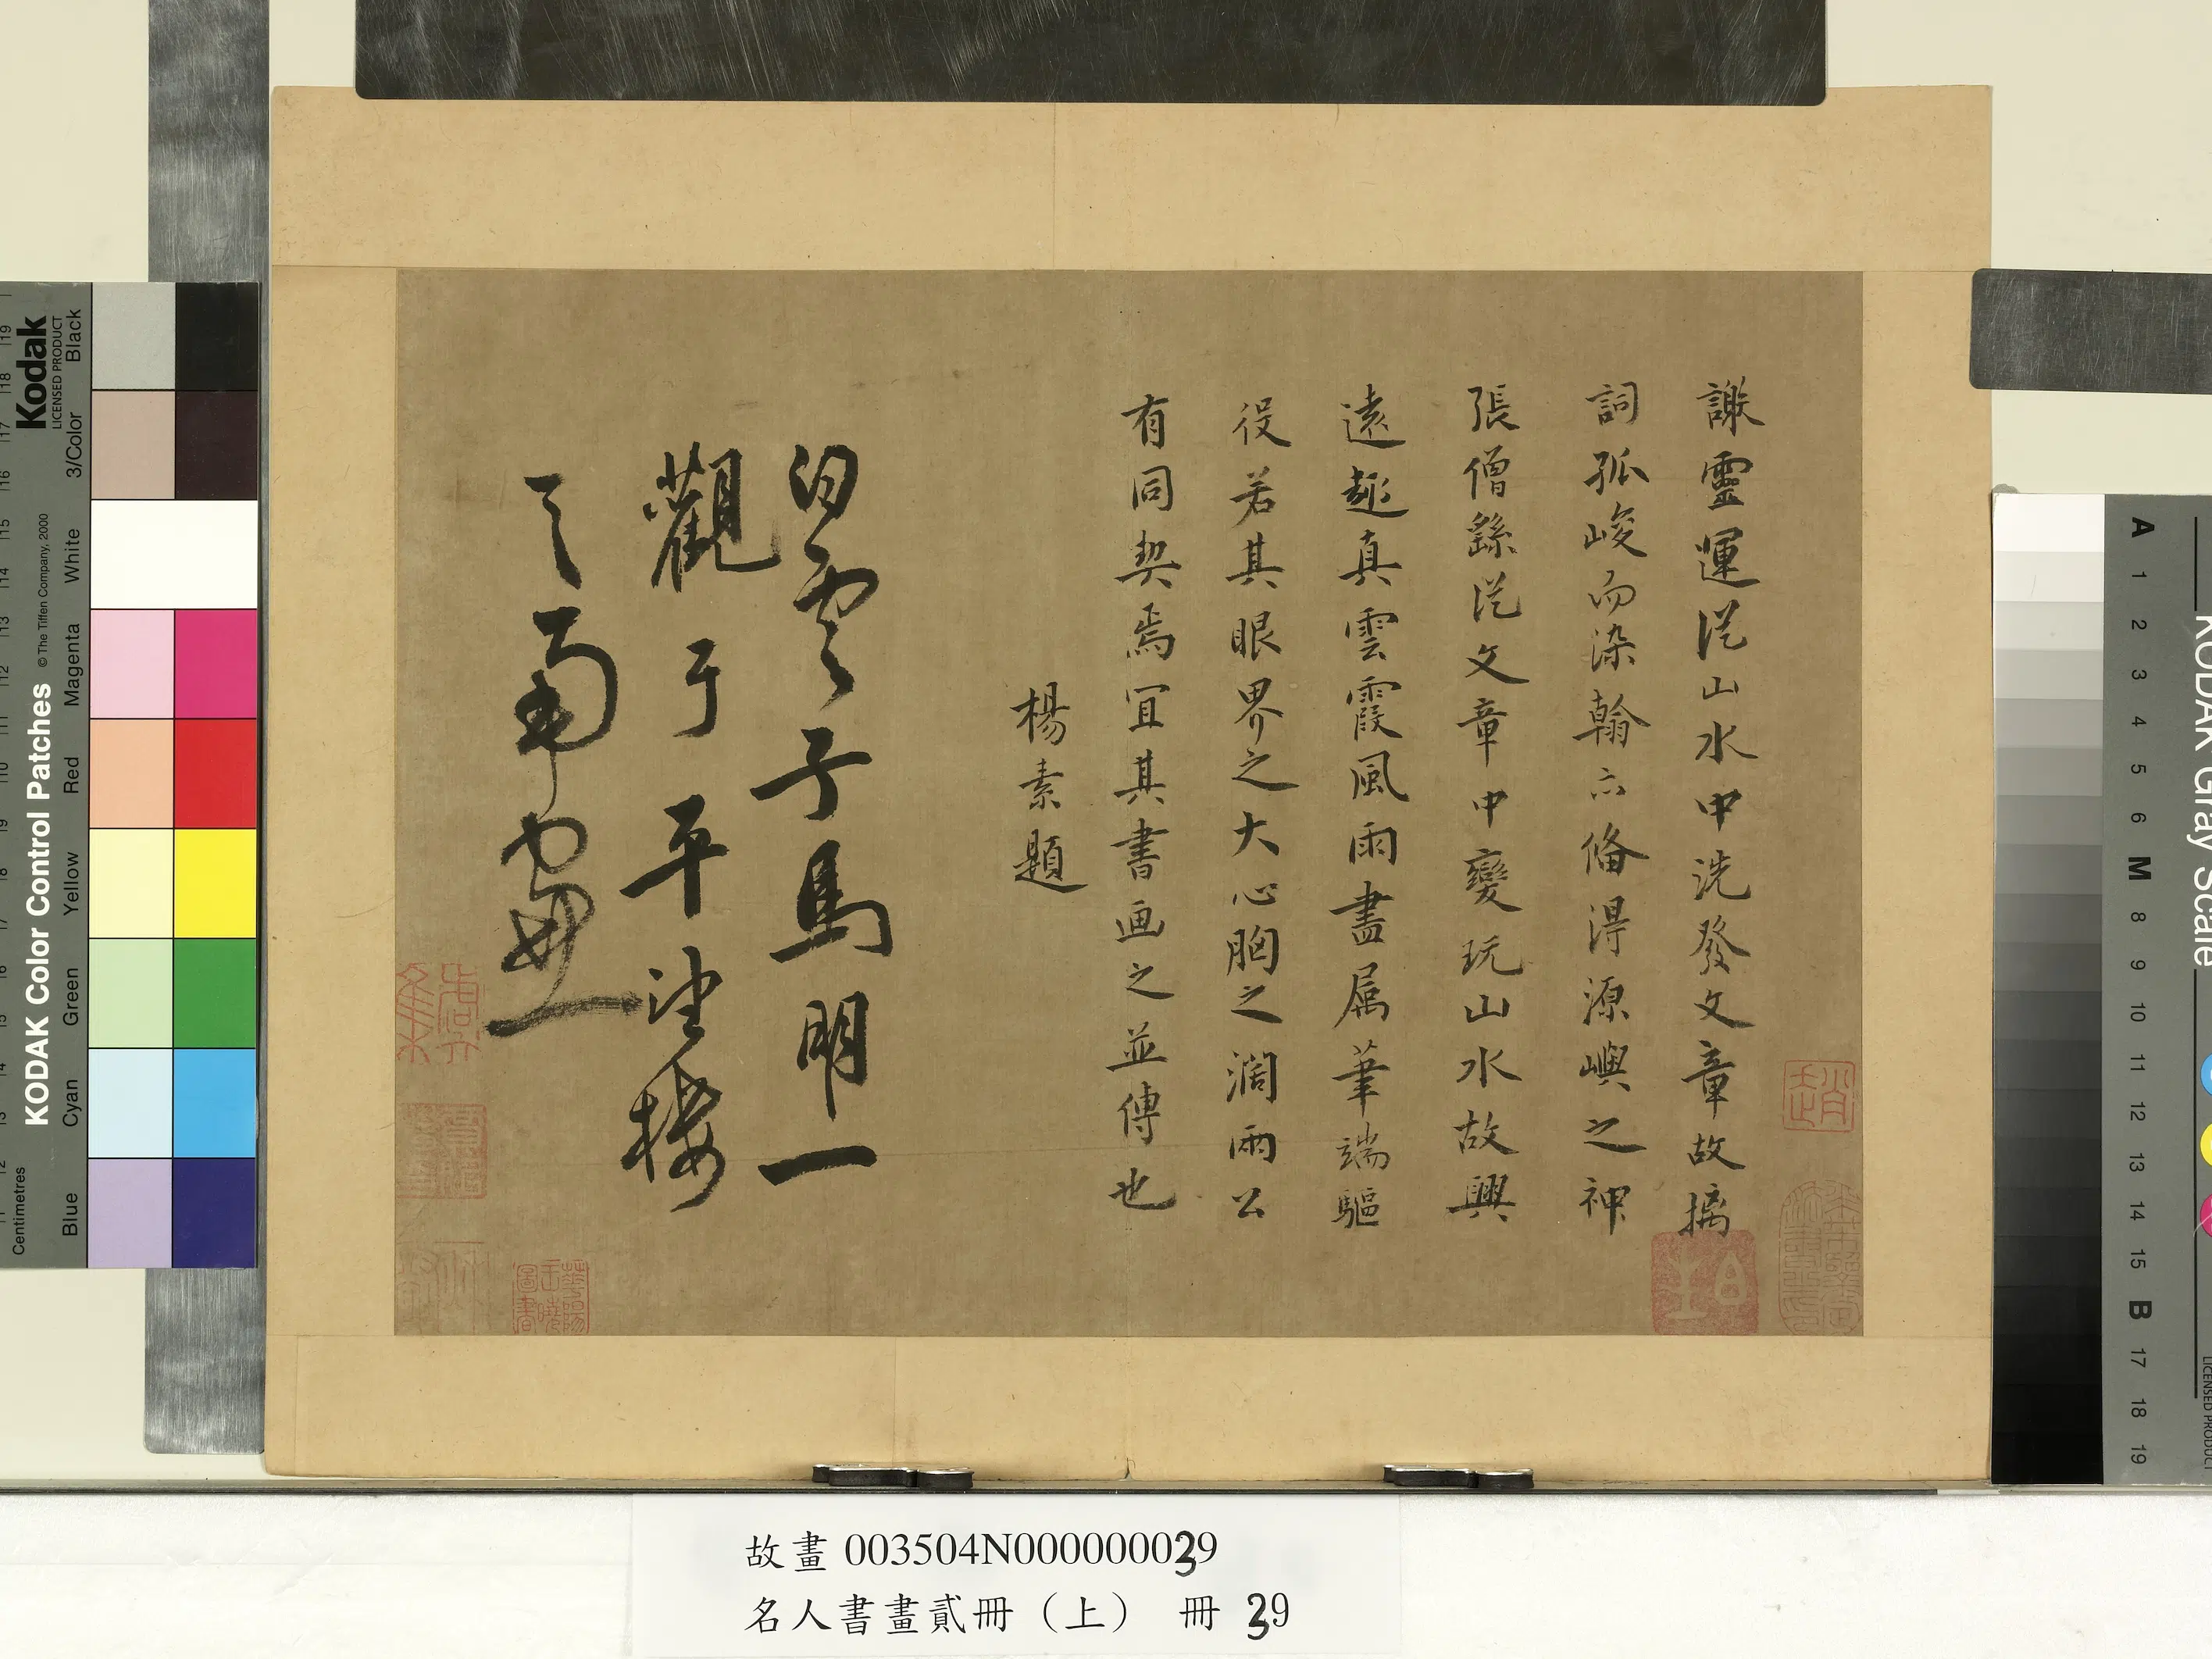 謝靈運從山水中洗發文章故摛
詞孤峻而染翰六脩得源嶼之神
張僧繇從文章中變玩山水故興
遠趣真雲霞風雨盡屬筆端驅
役若其眼界之大心胸之濶兩公
有同契焉宜其書画之並傳也
楊素題
白雲子馬明一
觀于平望樓
之南窗
趙
華陽
王曉
圖書
故畫 003504N000000039
名人書畫貳冊（上） 冊 39
Kodak
LICENSED PRODUCT
KODAK Color Control Patches
© The Tiffen Company, 2000
Centimetres
Blue
Cyan
Green
Yellow
Red
Magenta
White
3/Color
Black
KODAK Gray Scale
A 1 2 3 4 5 6 M 8 9 10 11 12 13 14 15 B 17 18 19